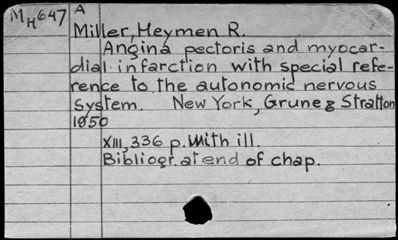 MH647 A
Miller, Heymen R.
Angina pectoris and myocar-
dial infarction with special refe-
rence to the autonomic nervous
system. New York, Grune & Stratton
1950
XIII, 336 p. with ill.
Bibliogr. at end of chap.